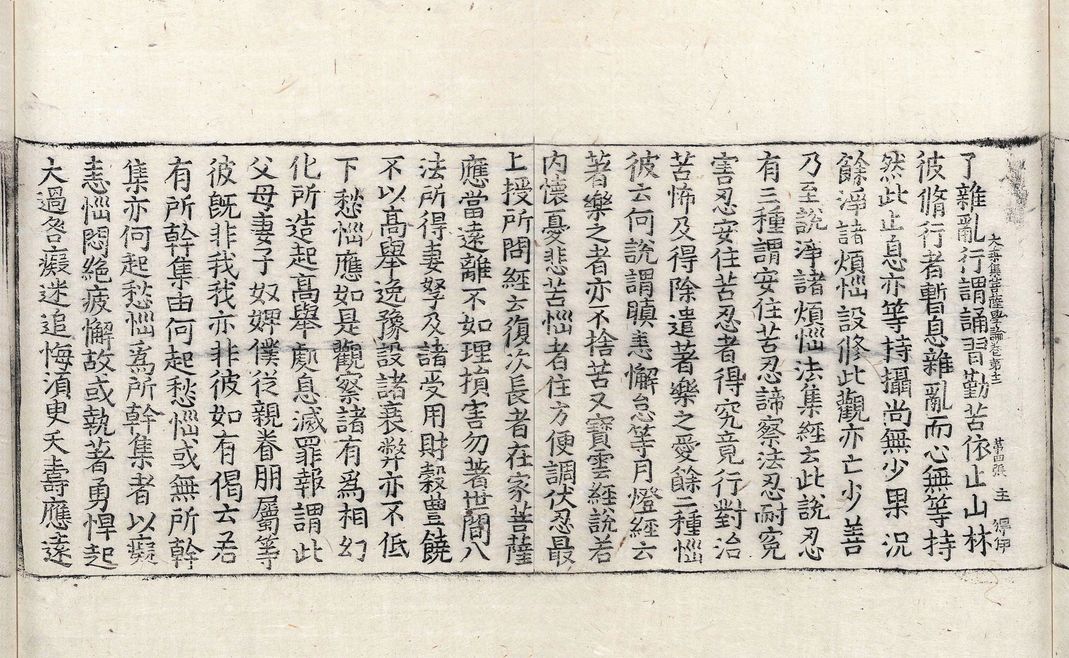 了雜亂行謂誦習勤苦依止山林
大乘集菩薩學論卷第十 第四張 主 得伊
彼脩行者暫息雜亂而心無等持
然此止息亦等持攝尚無少果況
餘淨諸煩惱設修此觀亦亡少善
乃至說淨諸煩惱法集經云此說忍
有三種謂安住苦忍諦察法忍耐冤
害忍安住苦忍者得究竟行對治
苦怖及得除遣著樂之愛餘二種惱
彼云何說謂瞋恚懈怠等月燈經云
著樂之者亦不捨苦又寶雲經說若
内懷憂悲苦惱者住方便調伏忍最
上授所問經云復次長者在家菩薩
應當遠離不如理損害勿著世間八
法所得妻孥及諸受用財穀豐饒
不以高舉逸豫設諸衰弊亦不低
下愁惱應如是觀察諸有爲相幻
化所造起高舉處息滅罪報謂此
父母妻子奴婢僕從親眷朋屬等
彼旣非我我亦非彼如有偈云若
有所幹集由何起愁惱或無所幹
集亦何起愁惱爲所幹集者以癡
恚惱悶絶疲懈故或執著勇悍起
大過咎癡迷追悔湏臾夭壽應遠